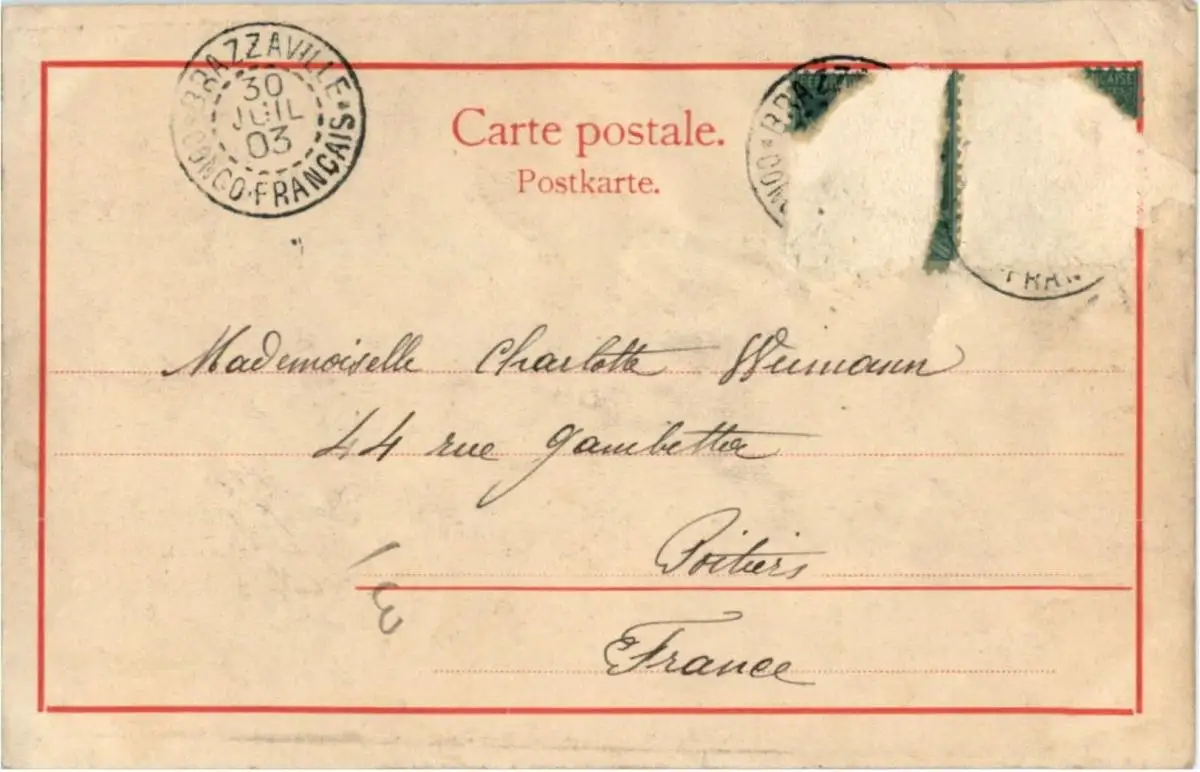 BRAZZAVILLE
30
JUIL
03
CONGO FRANÇAIS
Carte postale.
Postkarte.
BRAZZ
CONG
FRAN
Mademoiselle Charlotte Weimann
44 rue Gambetta
Poitiers
France